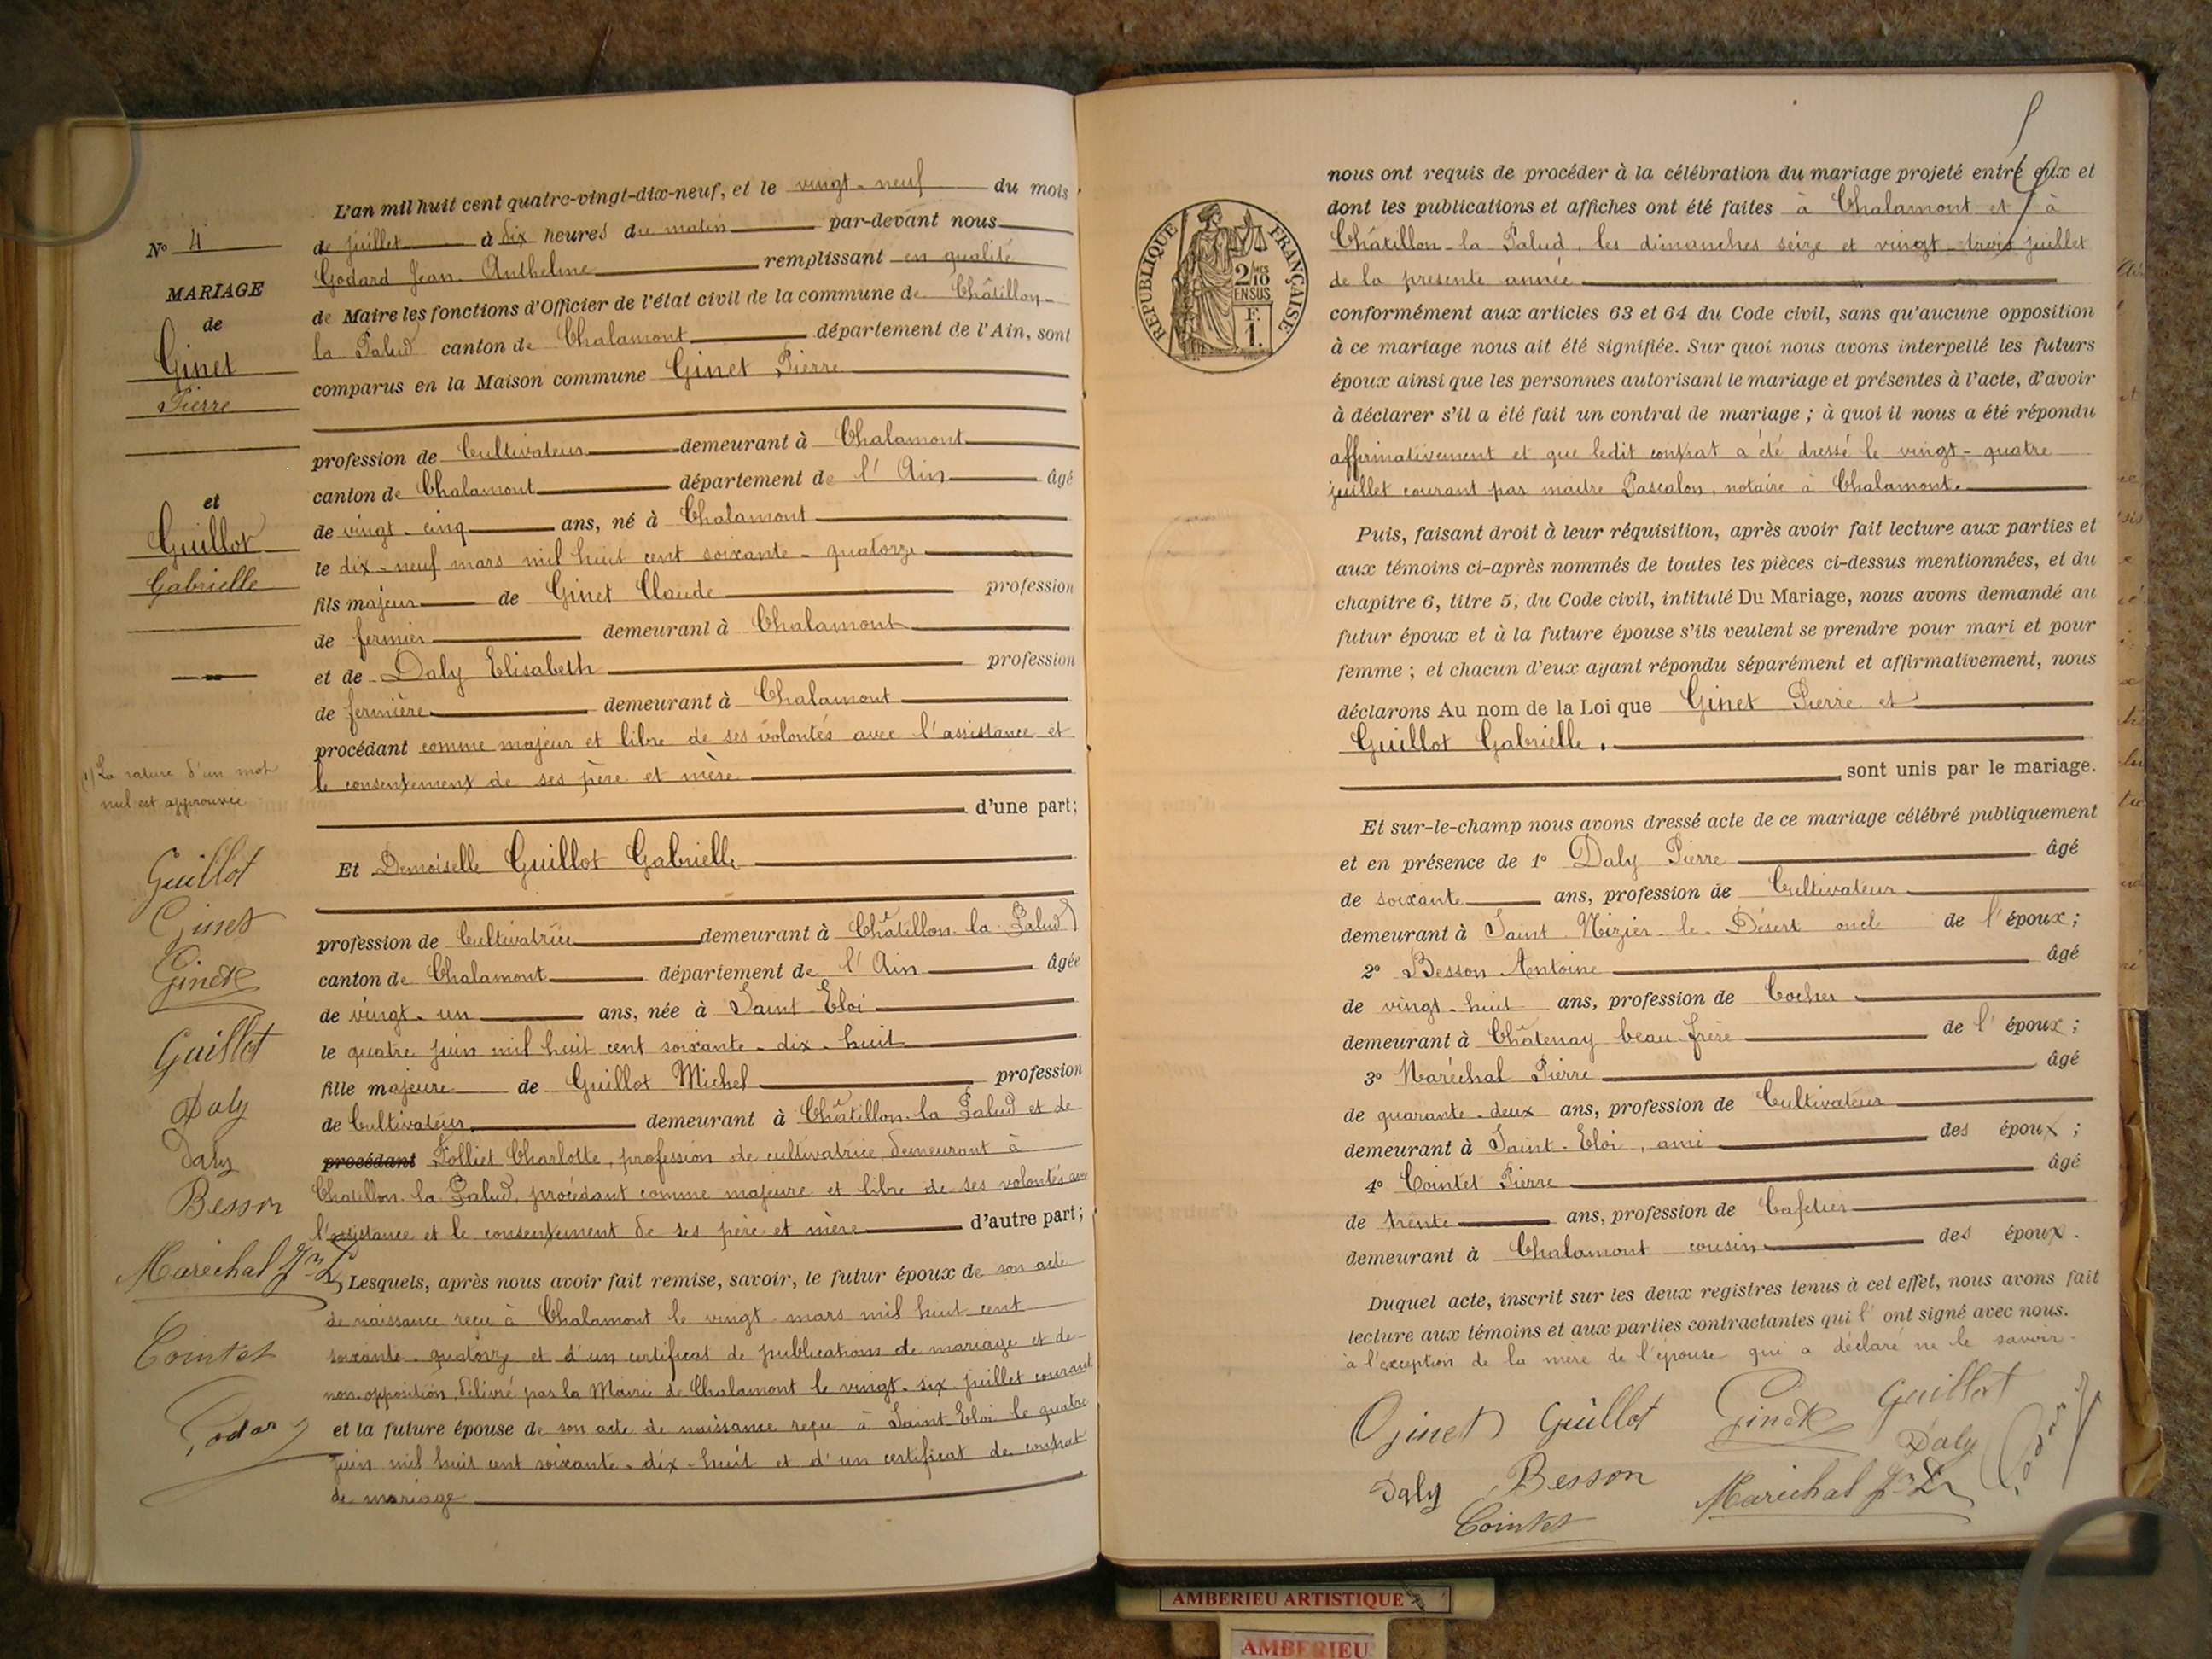 N° 4
MARIAGE
de
Ginet
Pierre
et
Guillot
Gabrielle
(1) La rature d'un mot
nul est approuvée
Guillot
Ginet
Ginet
Guillot
Daly
Daly
Besson
Maréchal
Cointet
Godard
L'an mil huit cent quatre-vingt-dix-neuf, et le vingt-neuf du mois
de juillet à dix heures du matin par-devant nous
Godard Jean Anthelme remplissant en qualité
de Maire les fonctions d'Officier de l'état civil de la commune de Châtillon-
la Palud canton de Chalamont département de l'Ain, sont
comparus en la Maison commune Ginet Pierre
profession de Cultivateur demeurant à Chalamont
canton de Chalamont département de l'Ain âgé
de vingt-cinq ans, né à Chalamont
le dix-neuf mars mil huit cent soixante-quatorze
fils majeur de Ginet Claude profession
de fermier demeurant à Chalamont
et de Daly Elisabeth profession
de fermière demeurant à Chalamont
procédant comme majeur et libre de ses volontés avec l'assistance et
le consentement de ses père et mère
d'une part;
Et Demoiselle Guillot Gabrielle
profession de Cultivatrice demeurant à Châtillon-la-Palud
canton de Chalamont département de l'Ain âgée
de vingt-un ans, née à Saint-Eloi
le quatre juin mil huit cent soixante-dix-huit
fille majeure de Guillot Michel profession
de Cultivateur demeurant à Châtillon-la Palud et de
procédant Folliet Charlotte, profession de cultivatrice demeurant à
Chatillon-la Palud, procédant comme majeure et libre de ses volontés avec
l'assistance et le consentement de ses père et mère d'autre part;
Lesquels, après nous avoir fait remise, savoir, le futur époux de son acte
de naissance reçu à Chalamont le vingt mars mil huit cent
soixante-quatorze et d'un certificat de publications de mariage et de
non-opposition, délivré par la Mairie de Chalamont le vingt-six juillet courant
et la future épouse de son acte de naissance reçu à Saint-Eloi le quatre
juin mil huit cent soixante-dix-huit et d'un certificat de contrat
de mariage
REPUBLIQUE FRANÇAISE
2/10 MES
EN SUS
F.
1.
nous ont requis de procéder à la célébration du mariage projeté entre eux et
dont les publications et affiches ont été faites à Chalamont et à
Châtillon-la Palud, les dimanches seize et vingt-trois juillet
de la présente année
conformément aux articles 63 et 64 du Code civil, sans qu'aucune opposition
à ce mariage nous ait été signifiée. Sur quoi nous avons interpellé les futurs
époux ainsi que les personnes autorisant le mariage et présentes à l'acte, d'avoir
à déclarer s'il a été fait un contrat de mariage ; à quoi il nous a été répondu
affirmativement et que ledit contrat a été dressé le vingt-quatre
juillet courant par maître Pascalon, notaire à Chalamont.
Puis, faisant droit à leur réquisition, après avoir fait lecture aux parties et
aux témoins ci-après nommés de toutes les pièces ci-dessus mentionnées, et du
chapitre 6, titre 5, du Code civil, intitulé Du Mariage, nous avons demandé au
futur époux et à la future épouse s'ils veulent se prendre pour mari et pour
femme ; et chacun d'eux ayant répondu séparément et affirmativement, nous
déclarons Au nom de la Loi que Ginet Pierre et
Guillot Gabrielle.
sont unis par le mariage.
Et sur-le-champ nous avons dressé acte de ce mariage célébré publiquement
et en présence de 1° Daly Pierre âgé
de soixante ans, profession de Cultivateur
demeurant à Saint-Nizier-le-Désert oncle de l'époux ;
2° Besson Antoine âgé
de vingt-huit ans, profession de Cocher
demeurant à Châtenay beau-frère de l'époux ;
3° Maréchal Pierre âgé
de quarante-deux ans, profession de Cultivateur
demeurant à Saint-Eloi, ami des époux ;
4° Cointet Pierre âgé
de trente ans, profession de Cafetier
demeurant à Chalamont cousin des époux.
Duquel acte, inscrit sur les deux registres tenus à cet effet, nous avons fait
lecture aux témoins et aux parties contractantes qui l'ont signé avec nous.
à l'exception de la mère de l'épouse qui a déclaré ne le savoir.
Ginet Guillot Ginet Guillot
Daly Besson Daly Godard
Cointet Maréchal
AMBERIEU ARTISTIQUE
AMBERIEU